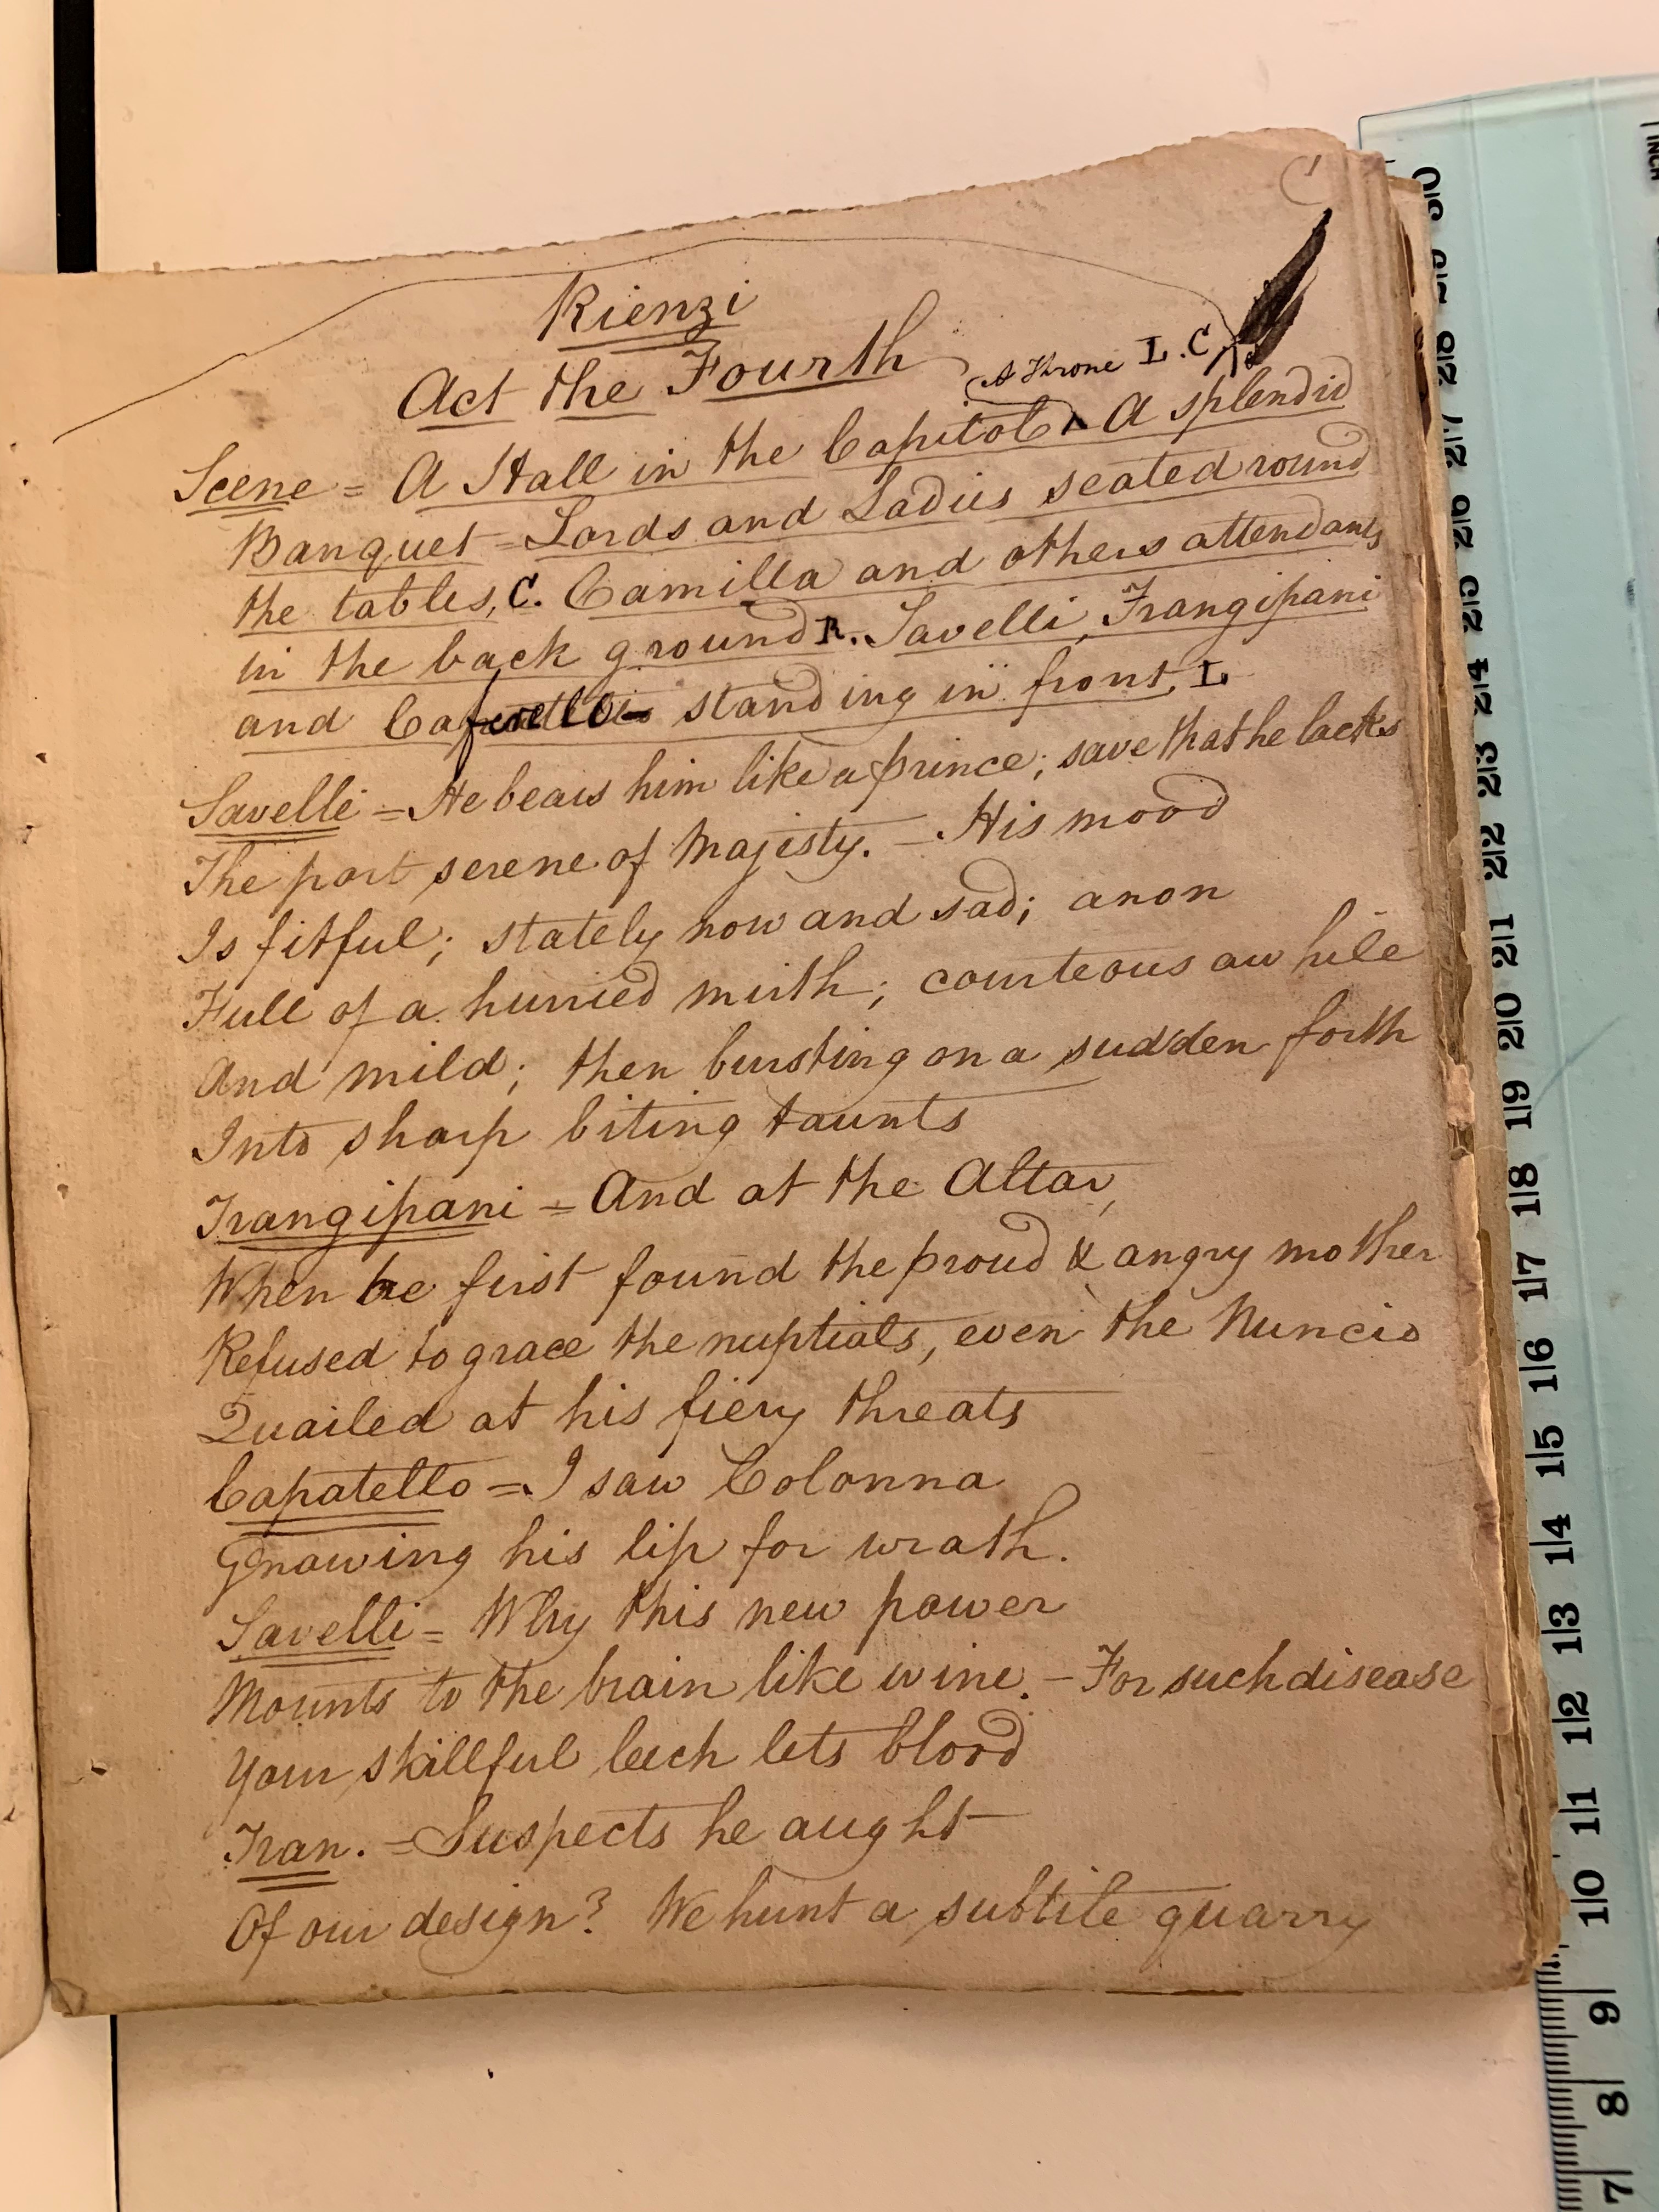 Rienzi
Act the Fourth
A Throne L.C.
Scene = A Hall in the Capitol ^ A splendid
Banquet = Lords and Ladies seated round
the tables, C. Camilla and others attendants
in the back ground R. Savelli, Frangipani
and standing in front, L
Savelli = He bears him like a prince; save that he lacks
The port serene of Majesty. – His mood
Is fitful; stately now and sad; anon
Full of a hurried mirth; courteous awhile
And mild; then bursting on a sudden forth
Into sharp biting taunts
Frangipani = And at the Altar,
When he first found the proud & angry mother
Refused to grace the nuptials, even the Nuncio
Quailed at his fiery threats
Capatello = I saw Colonna
Gnawing his lip for wrath.
Savelli = Why this new power
Mounts to the brain like wine. – For such disease
Your skillful leech lets blood
Fran. = Suspects he aught
Of our design? We hunt a subtile quarry
INCH
30 29 28 27 26 25 24 23 22 21 20 19 18 17 16 15 14 13 12 11 10 9 8 7